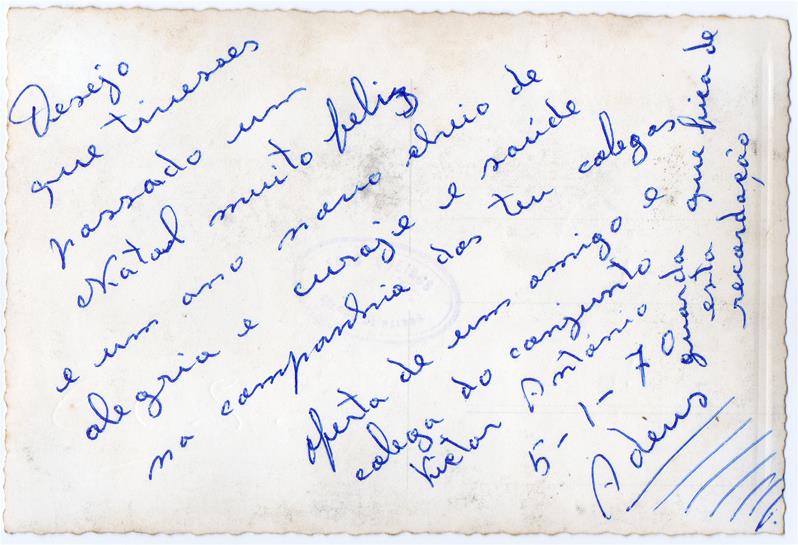 Desejo
que tivesses
passado um
Natal muito feliz
e um ano novo cheio de
alegria e curaje e saúde
na companhia dos teu colegas
oferta de um amigo e
colega do conjunto
Victor António
5-1-70
Adeus
guarda que fica de
esta
recordação